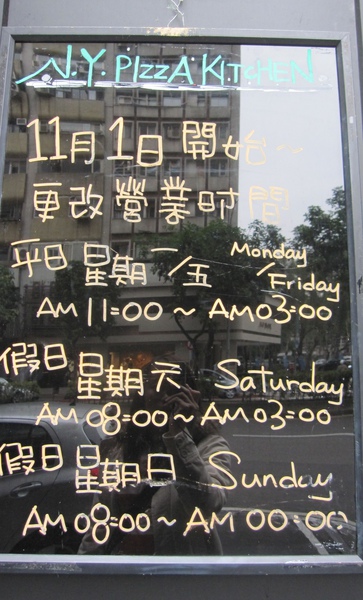 N.Y. PIZZA KITCHEN
11月1日 開始~
更改營業時間
平日 星期一/五 Monday/Friday
AM 11=00 ~ AM 03=00
假日 星期六 Saturday
AM 08=00 ~ AM 03=00
假日 星期日 Sunday
AM 08=00 ~ AM 00=00